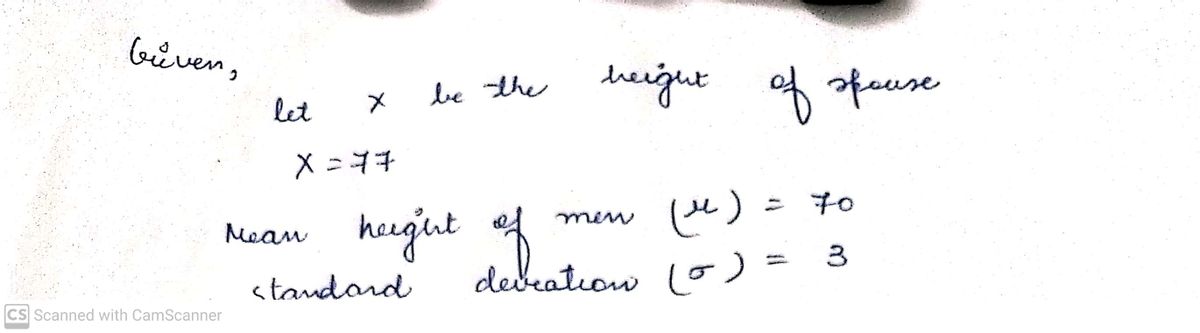 Given,
let x be the height of spouse
X = 77
Mean height of men (μ) = 70
standard deviation (σ) = 3
CS Scanned with CamScanner